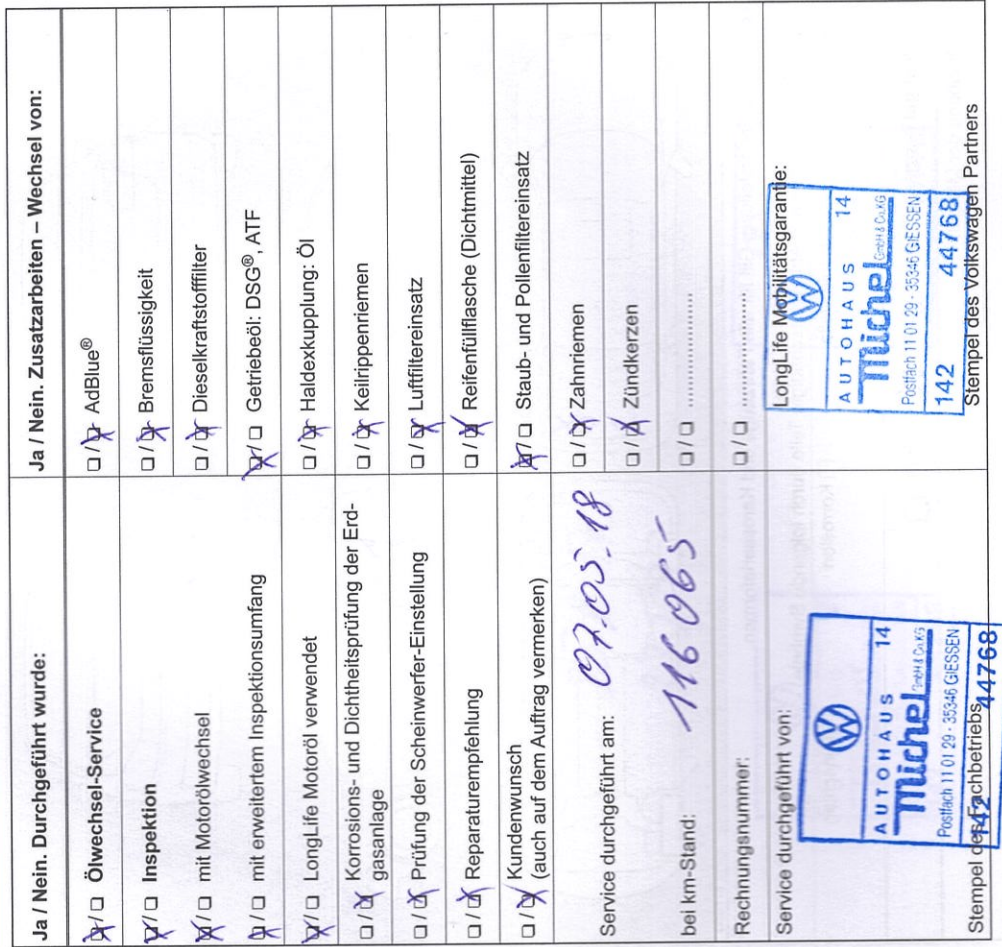 Ja / Nein. Durchgeführt wurde:
☒/☐ Ölwechsel-Service
☒/☐ Inspektion
☒/☐ mit Motorölwechsel
☒/☐ mit erweitertem Inspektionsumfang
☒/☐ LongLife Motoröl verwendet
☐/☒ Korrosions- und Dichtheitsprüfung der Erd-
gasanlage
☐/☒ Prüfung der Scheinwerfer-Einstellung
☐/☒ Reparaturempfehlung
☐/☒ Kundenwunsch
(auch auf dem Auftrag vermerken)
Service durchgeführt am: 07.05.18
bei km-Stand: 116 065
Rechnungsnummer:
Service durchgeführt von:
AUTOHAUS 14
Michel GmbH & Co.KG
Postfach 11 01 29 - 35346 GIESSEN
142 44768
Stempel des Fachbetriebs
Ja / Nein. Zusatzarbeiten – Wechsel von:
☐/☒ AdBlue®
☐/☒ Bremsflüssigkeit
☐/☒ Dieselkraftstofffilter
☒/☐ Getriebeöl: DSG®, ATF
☐/☒ Haldexkupplung: Öl
☐/☒ Keilrippenriemen
☐/☒ Luftfiltereinsatz
☐/☒ Reifenfüllflasche (Dichtmittel)
☒/☐ Staub- und Pollenfiltereinsatz
☐/☒ Zahnriemen
☐/☒ Zündkerzen
☐/☐ ........................
☐/☐ ........................
LongLife Mobilitätsgarantie:
AUTOHAUS 14
Michel GmbH & Co.KG
Postfach 11 01 29 - 35346 GIESSEN
142 44768
Stempel des Volkswagen Partners